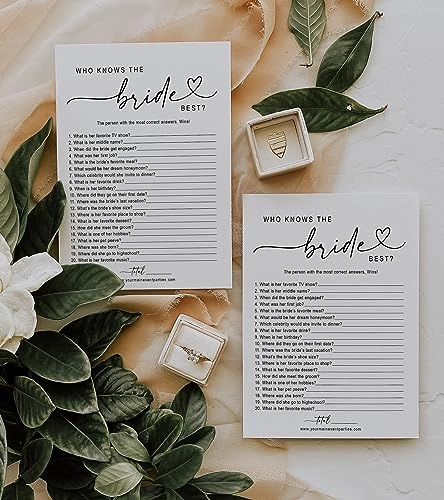 WHO KNOWS THE
bride
BEST?
The person with the most correct answers, Wins!
1. What is her favorite TV show?
2. What is her middle name?
3. When did the bride get engaged?
4. What was her first job?
5. What is the bride's favorite meal?
6. What would be her dream honeymoon?
7. Which celebrity would she invite to dinner?
8. What is her favorite drink?
9. When is her birthday?
10. Where did they go on their first date?
11. Where was the bride's last vacation?
12. What's the bride's shoe size?
13. Where is her favorite place to shop?
14. What is her favorite dessert?
15. How did she meet the groom?
16. What is one of her hobbies?
17. What is her pet peeve?
18. Where was she born?
19. Where did she go to highschool?
20. What is her favorite music?
total
www.yourmaineventparties.com
WHO KNOWS THE
bride
BEST?
The person with the most correct answers, Wins!
1. What is her favorite TV show?
2. What is her middle name?
3. When did the bride get engaged?
4. What was her first job?
5. What is the bride's favorite meal?
6. What would be her dream honeymoon?
7. Which celebrity would she invite to dinner?
8. What is her favorite drink?
9. When is her birthday?
10. Where did they go on their first date?
11. Where was the bride's last vacation?
12. What's the bride's shoe size?
13. Where is her favorite place to shop?
14. What is her favorite dessert?
15. How did she meet the groom?
16. What is one of her hobbies?
17. What is her pet peeve?
18. Where was she born?
19. Where did she go to highschool?
20. What is her favorite music?
total
www.yourmaineventparties.com